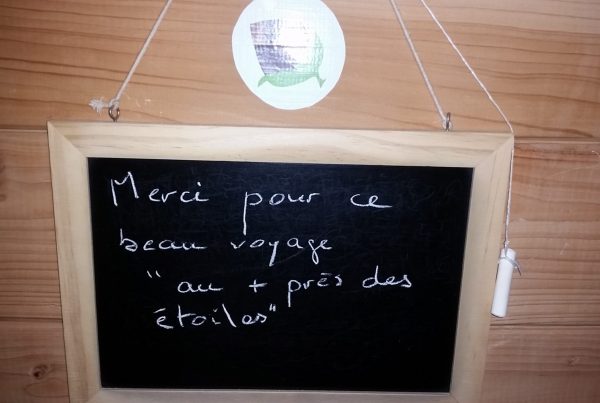 Merci pour ce
beau voyage
"au + près des
étoiles"